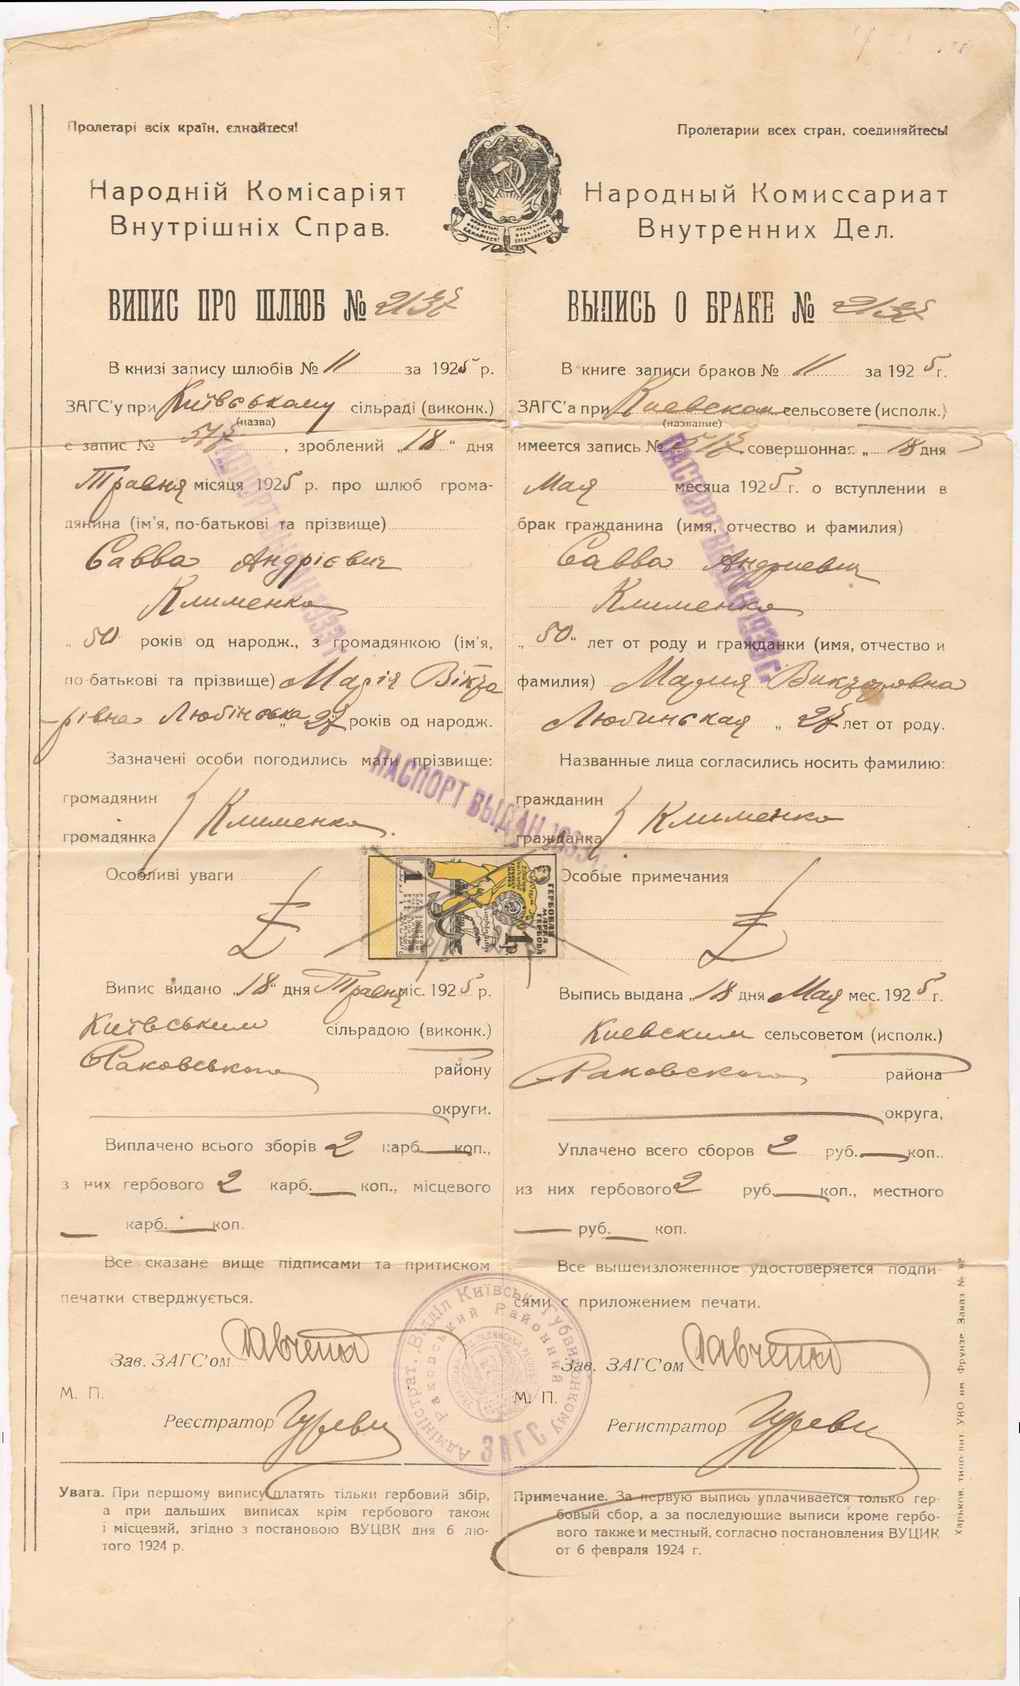 Пролетарі всіх країн, єднайтеся!
Народній Комісаріят
Внутрішніх Справ.
ВИПИС ПРО ШЛЮБ №
В книзі запису шлюбів № 11 за 1925 р.
ЗАГС'у при Київському сільраді (виконк.)
(назва)
є запис № , зроблений „18" дня
Травня місяця 1925 р. про шлюб грома-
дянина (ім'я, по-батькові та прізвище)
Савва Андрієвич
Клименко
„50" років од народж., з громадянкою (ім'я,
по-батькові та прізвище) Марія Вікто
рівна Любінська років од народж.
Зазначені особи погодились мати прізвище:
громадянин
громадянка Клименко.
Особливі уваги
Випис видано „18" дня Травня міс. 1925 р.
Київським сільрадою (виконк.)
Раковського району
округи.
Виплачено всього зборів 2 карб. — коп.,
з них гербового 2 карб. — коп., місцевого
— карб. — коп.
Все сказане вище підписами та притиском
печатки стверджується.
Зав. ЗАГС'ом
М. П.
Реєстратор
Увага. При першому випису платять тільки гербовий збір,
а при дальших виписах крім гербового також
і місцевий, згідно з постановою ВУЦВК дня 6 лю-
того 1924 р.
Пролетарии всех стран, соединяйтесь!
Народный Комиссариат
Внутренних Дел.
ВЫПИСЬ О БРАКЕ №
В книге записи браков № 11 за 1925 г.
ЗАГС'а при Киевском сельсовете (исполк.)
(название)
имеется запись № совершонная „18 дня
Мая месяца 1925 г. о вступлении в
брак гражданина (имя, отчество и фамилия)
Савва Андриевич
Клименко
„50" лет от роду и гражданки (имя, отчество и
фамилия) Мария Викторовна
Любинская „ лет от роду.
Названные лица согласились носить фамилию:
гражданин
гражданка Клименко
Особые примечания
Выпись выдана „18 дня Мая мес. 1925 г.
Киевским сельсоветом (исполк.)
Раковского района
округа,
Уплачено всего сборов 2 руб. — коп..
из них гербового 2 руб. — коп., местного
— руб. — коп.
Все вышеизложенное удостоверяется подпи-
сями с приложением печати.
Зав. ЗАГС'ом
М. П.
Регистратор
Примечание. За первую выпись уплачивается только гер-
бовый сбор, а за последующие выписи кроме гербо-
вого также и местный, согласно постановления ВУЦИК
от 6 февраля 1924 г.
ПАСПОРТ ВЫДАН 1933
ПАСПОРТ ВЫДАН 193 г.
ПАСПОРТ ВЫДАН 1933
ГЕРБОВАЯ
МАРКА
ГЕРБОВА
1
1 р
Адміністрат. Відділ Київськ. Губвиконкому
Раковський Районний
ЗАГС
Харьков, типо-лит. УВО им. Фрунзе. Заказ №